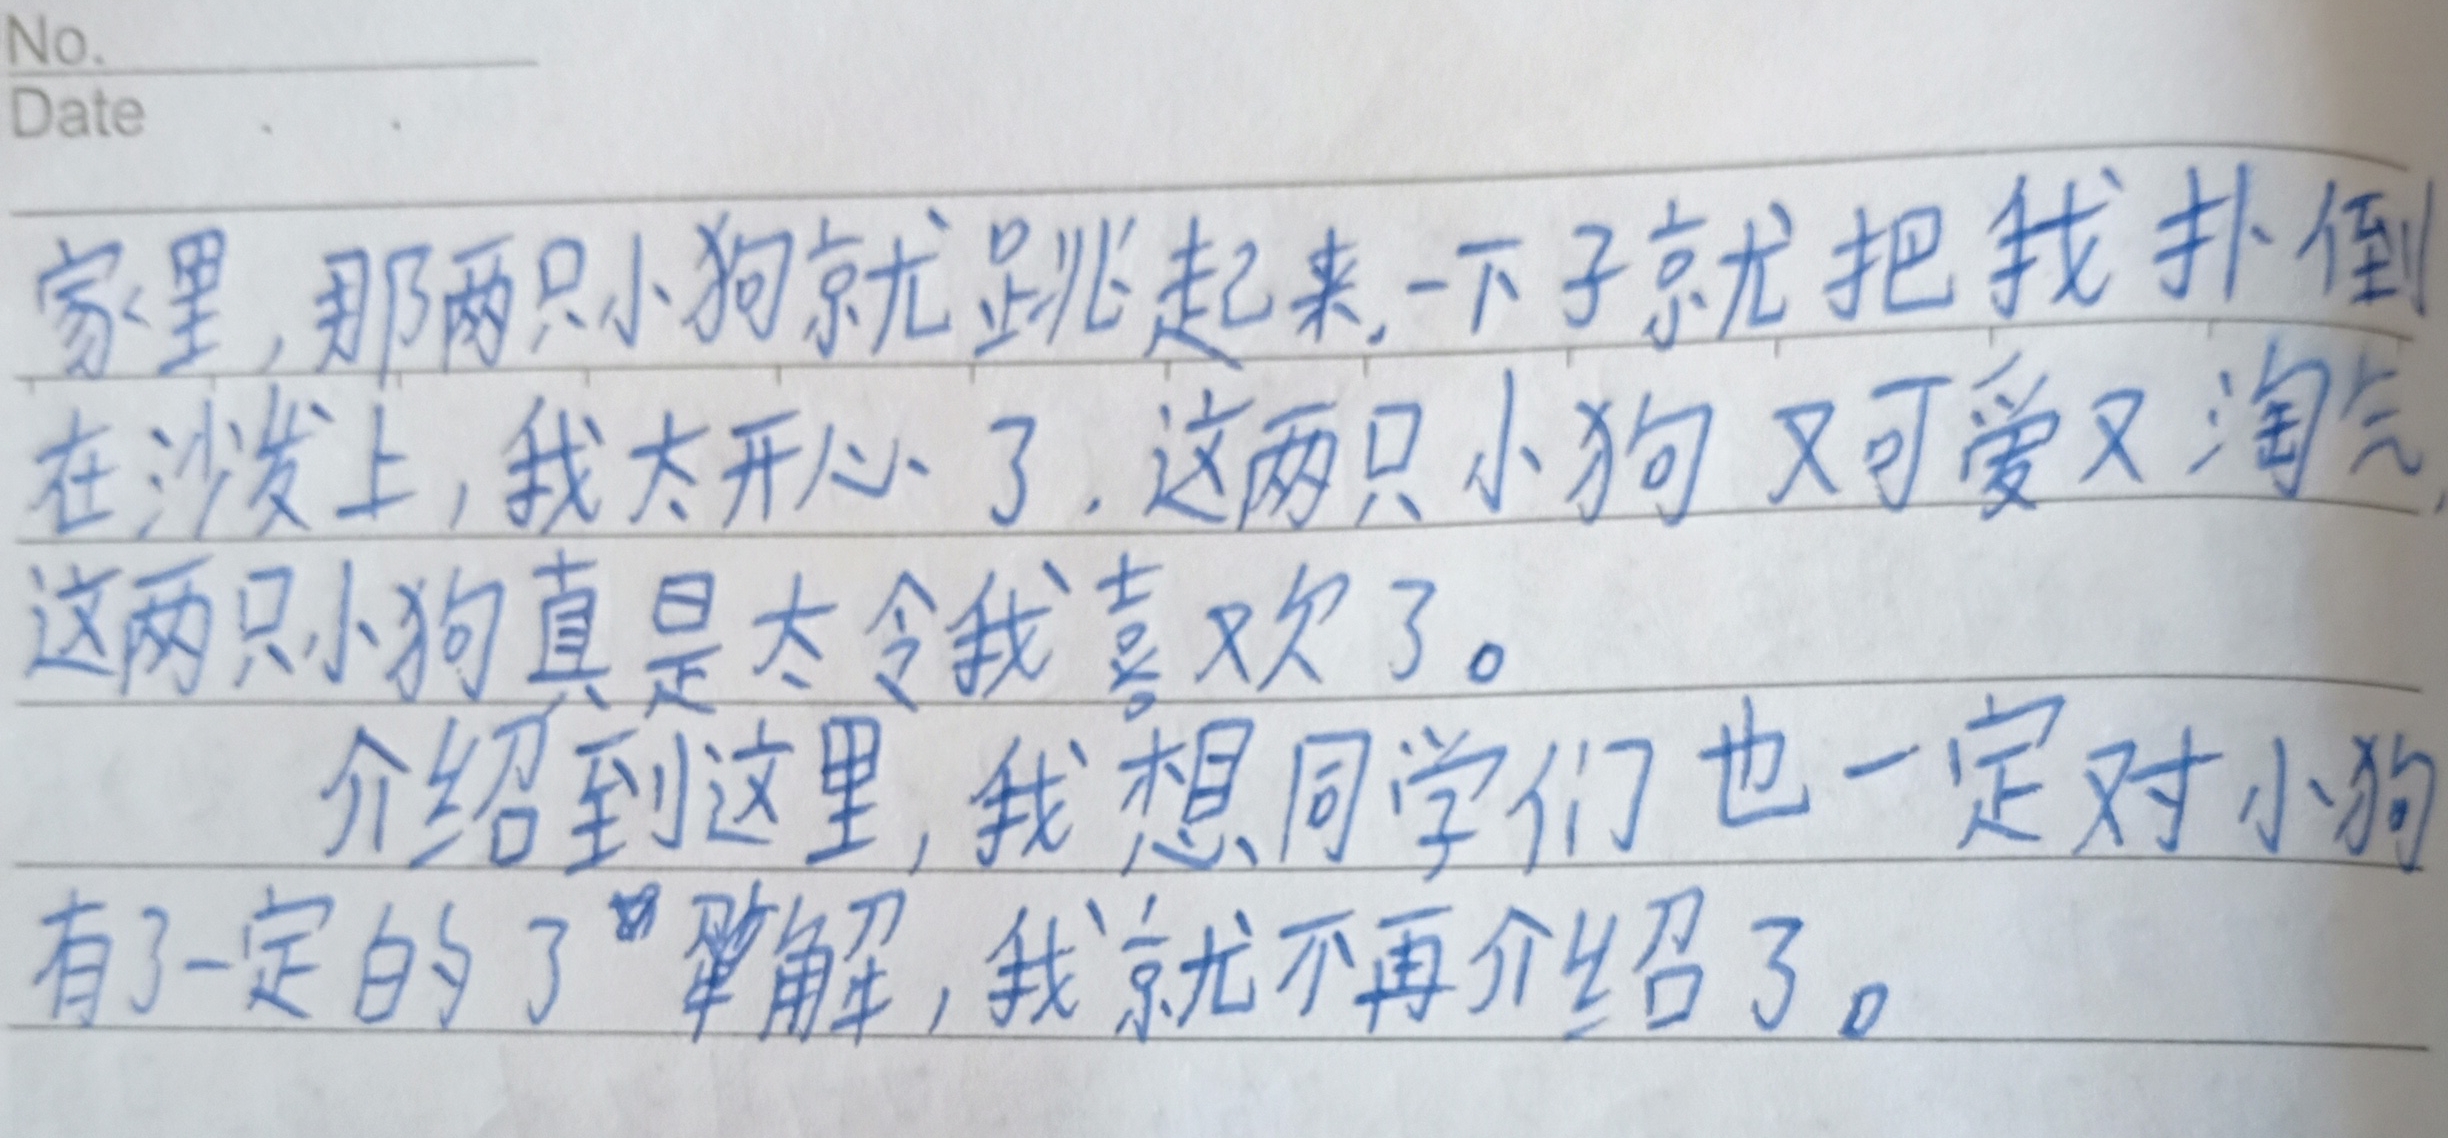 No.
Date
家里,那两只小狗就跳起来,一下子就把我扑倒
在沙发上,我太开心了.这两只小狗又可爱又淘气,
这两只小狗真是太令我喜欢了。
介绍到这里,我想同学们也一定对小狗
有了一定的了解,我就不再介绍了。